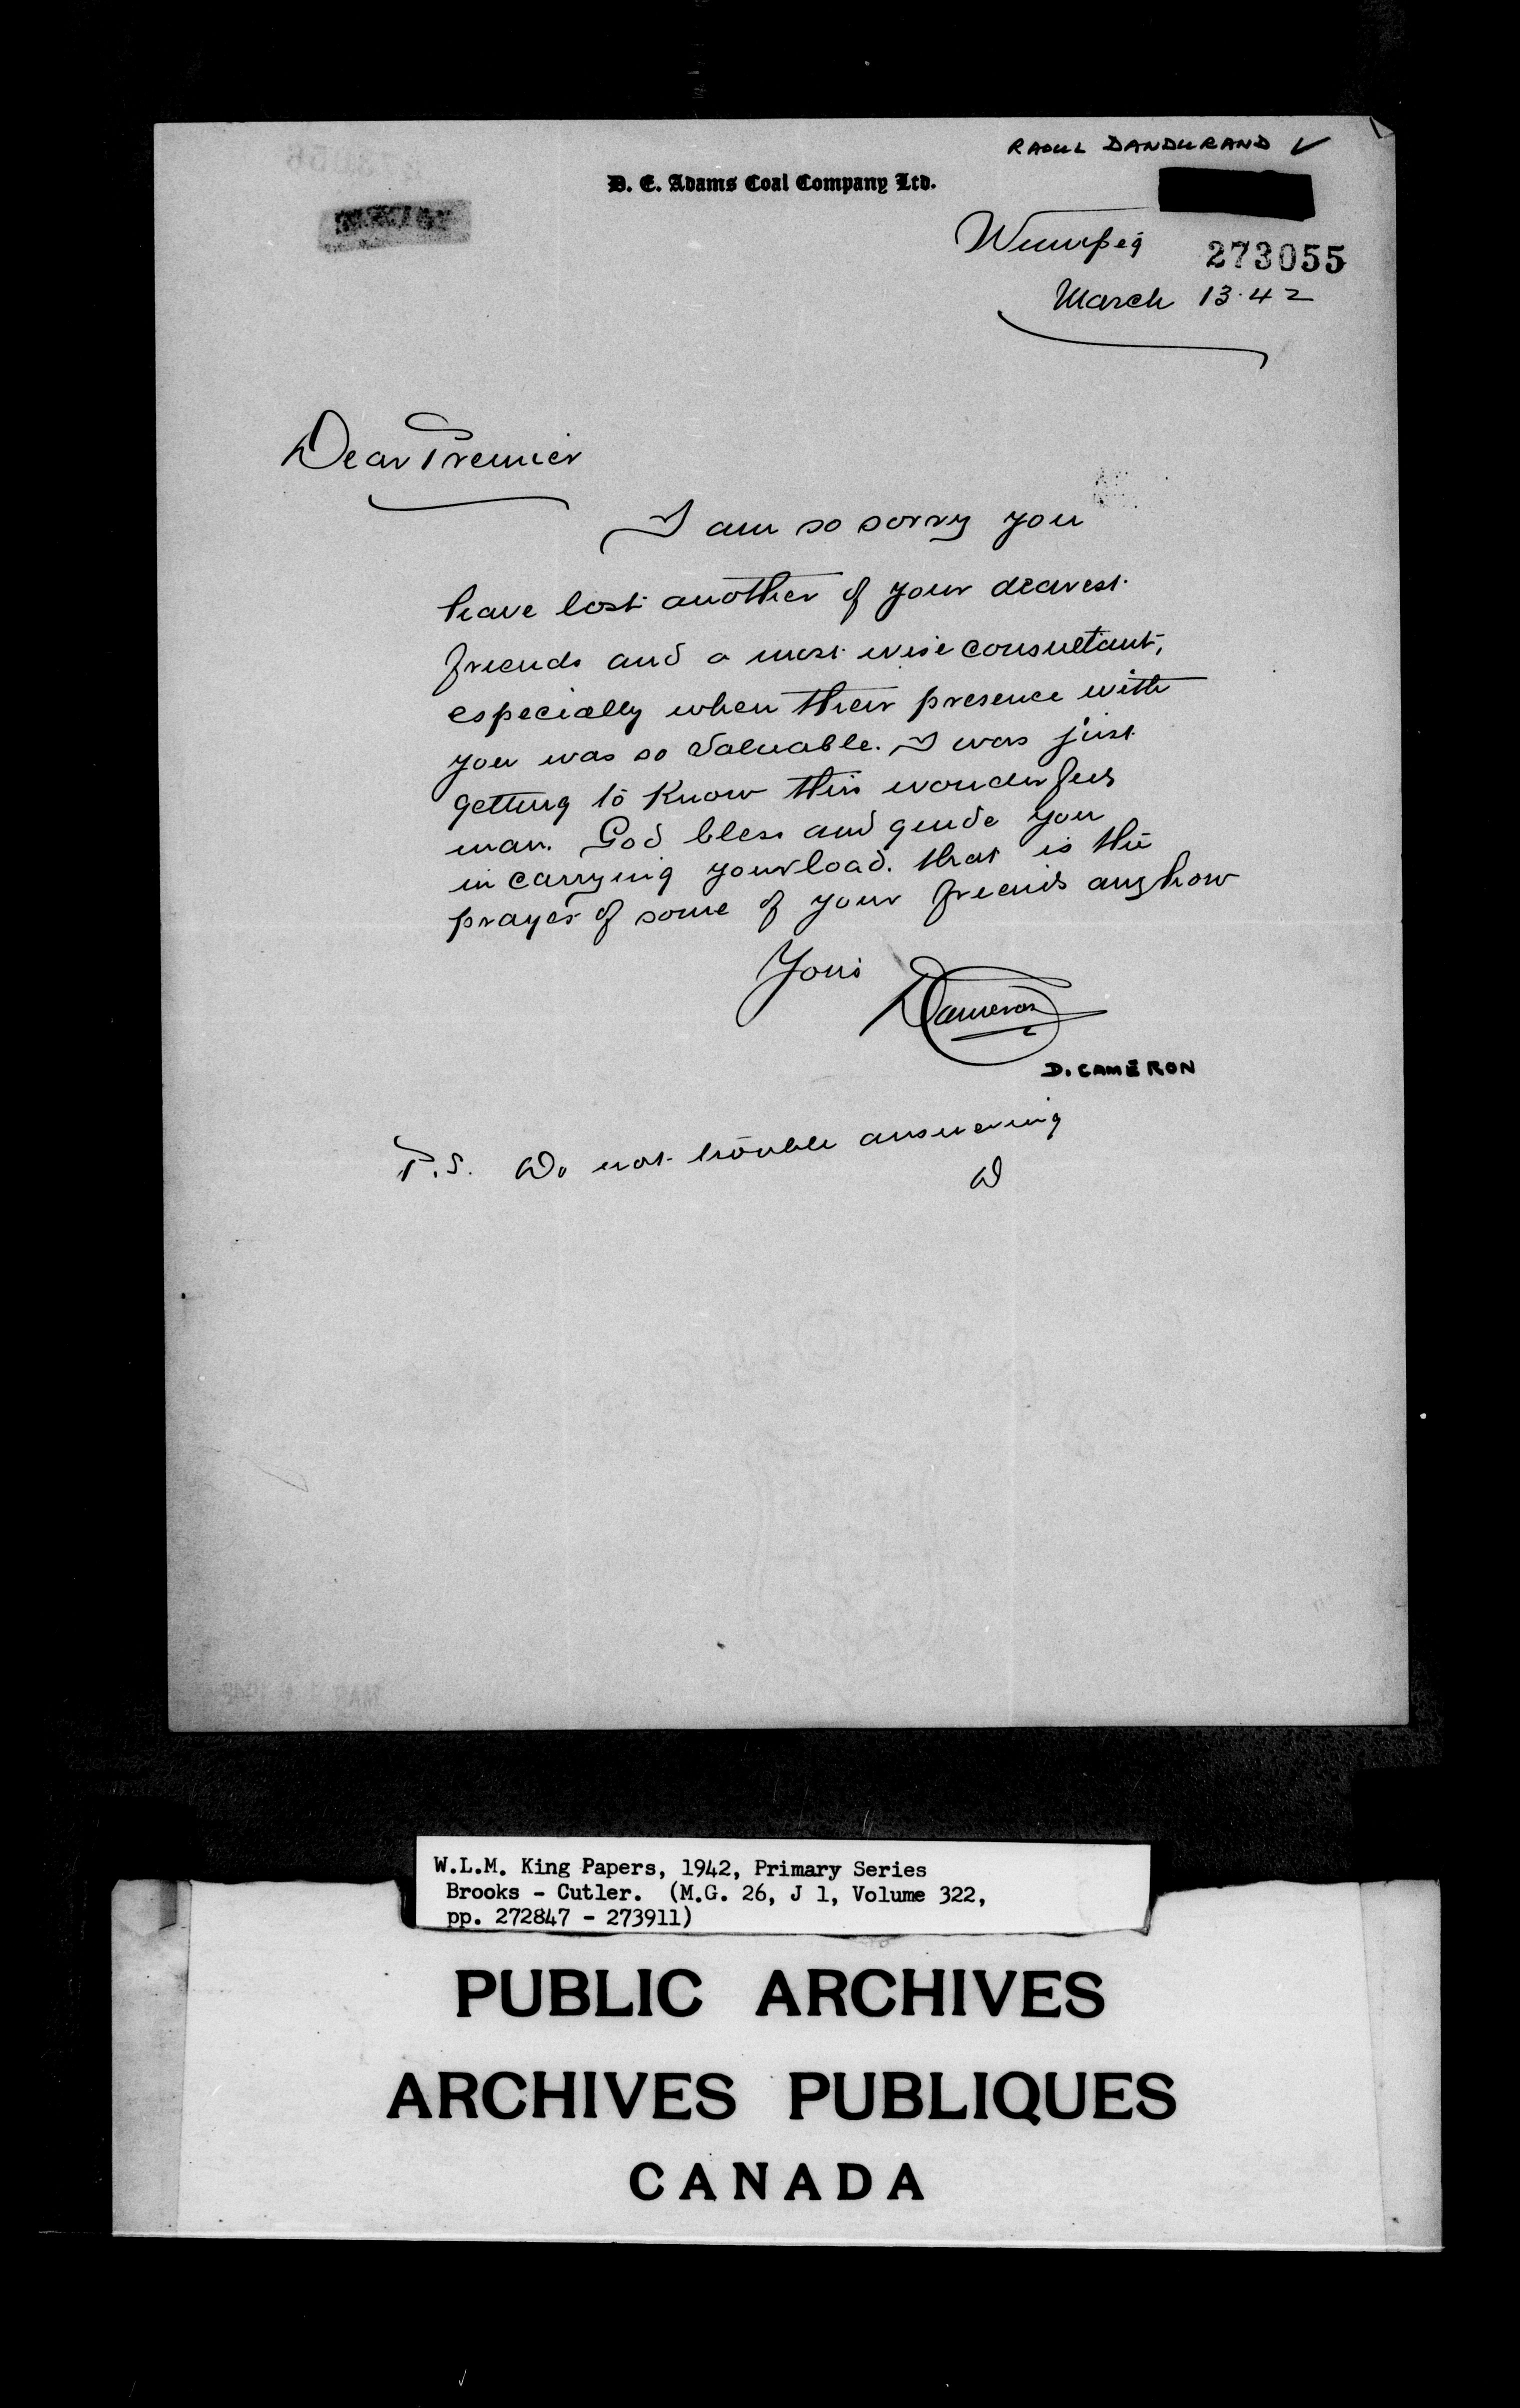 RAOUL DANDURAND ✓
D. E. Adams Coal Company Ltd.
Winnipeg
273055
March 13.42
Dear Premier
I am so sorry you
have lost another of your dearest
friends and a most wise consultant,
especially when their presence with
you was so valuable. I was just
getting to know this wonderful
man. God bless and guide you
in carrying your load. that is the
prayer of some of your friends anyhow
Yours
DCameron
D. CAMERON
P.S. Do not trouble answering
D
W.L.M. King Papers, 1942, Primary Series
Brooks - Cutler. (M.G. 26, J 1, Volume 322,
pp. 272847 - 273911)
PUBLIC ARCHIVES
ARCHIVES PUBLIQUES
CANADA